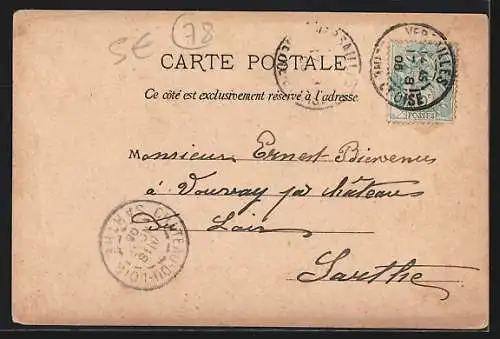 SE 78
CARTE POSTALE
Ce côté est exclusivement réservé à l'adresse
VERSAILLES
S. ET OISE
POSTES
Monsieur Ernest Bienvenus
à Vouvray par châteaux
Du Loir
Sarthe
CHATEAU-DU-LOIR
SARTHE